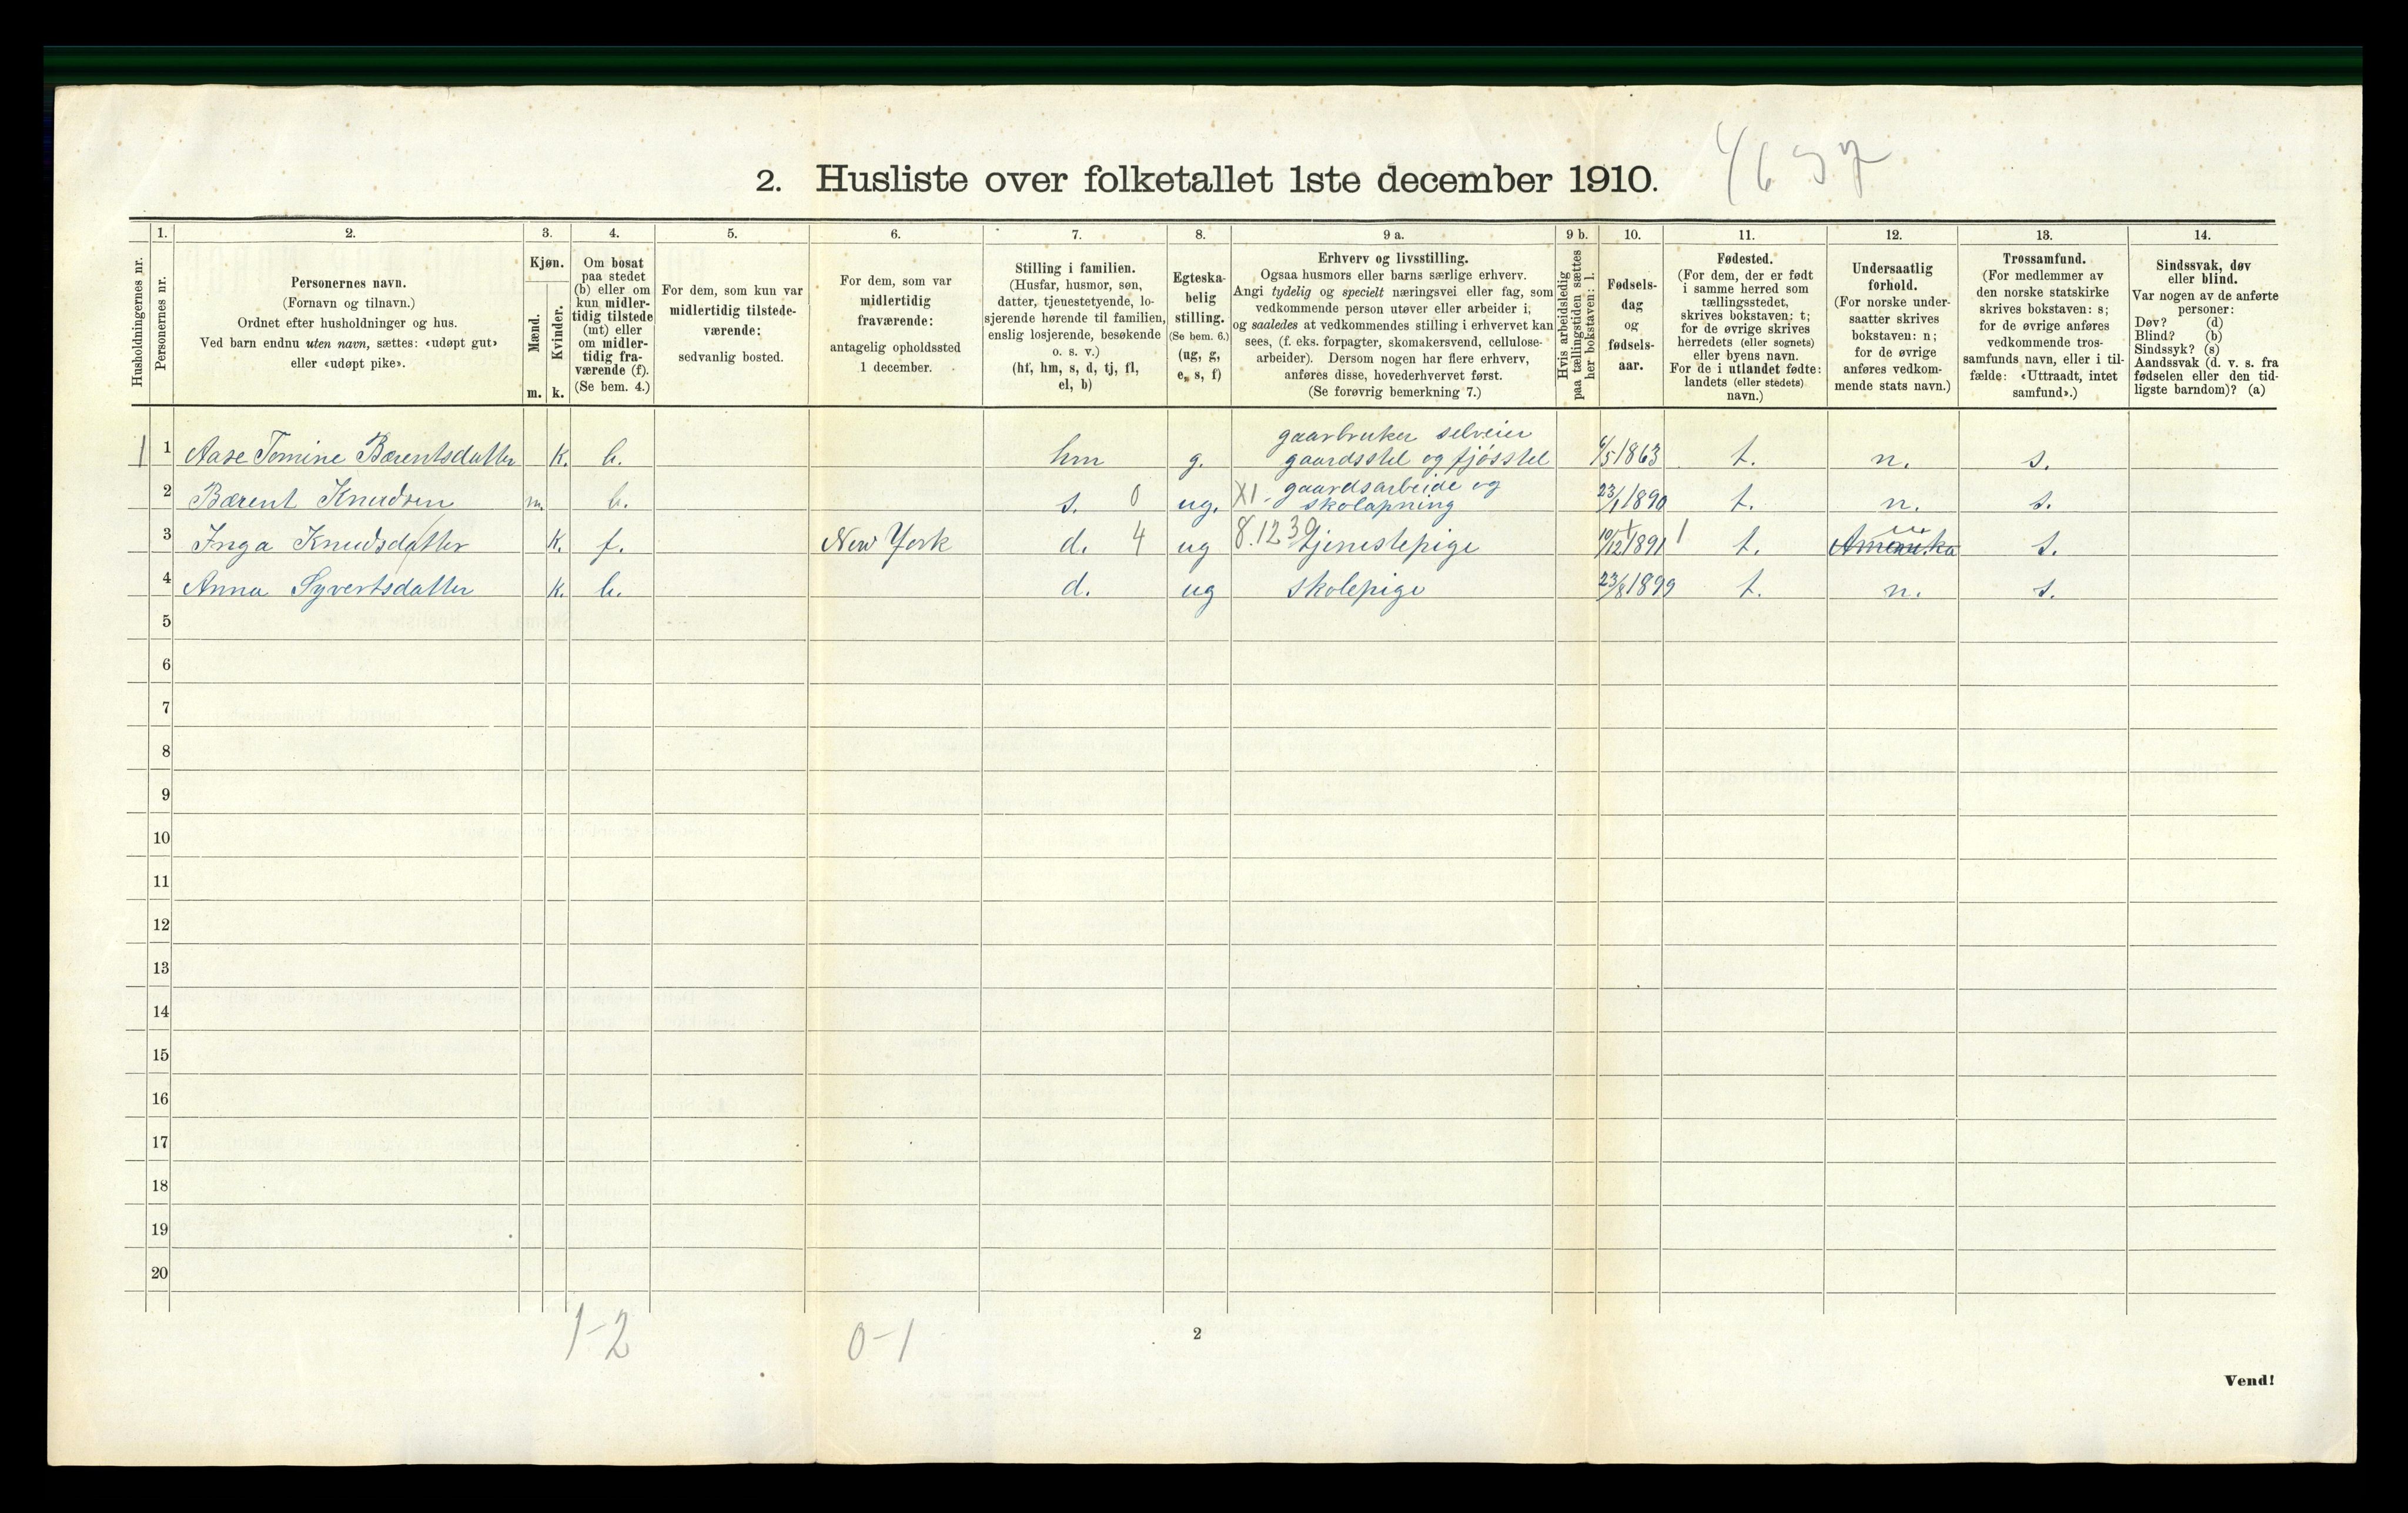 2. Husliste over folketallet 1ste december 1910.
Husholdningernes nr.
1.
Personernes nr.
2.
Personernes navn.
(Fornavn og tilnavn.)
Ordnet efter husholdninger og hus.
Ved barn endnu uten navn, sættes: «udøpt gut»
eller «udøpt pike».
3.
Kjøn.
Mænd.
Kvinder.
m. k.
4.
Om bosat
paa stedet
(b) eller om
kun midler-
tidig tilstede
(mt) eller
om midler-
tidig fra-
værende (f).
(Se bem. 4.)
5.
For dem, som kun var
midlertidig tilstede-
værende:
sedvanlig bosted.
6.
For dem, som var
midlertidig
fraværende:
antagelig opholdssted
1 december.
7.
Stilling i familien.
(Husfar, husmor, søn,
datter, tjenestetyende, lo-
sjerende hørende til familien,
enslig losjerende, besøkende
o. s. v.)
(hf, hm, s, d, tj, fl,
el, b)
8.
Egteska-
belig
stilling.
(Se bem. 6.)
(ug, g,
e, s, f)
9 a.
Erhverv og livsstilling.
Ogsaa husmors eller barns særlige erhverv.
Angi tydelig og specielt næringsvei eller fag, som
vedkommende person utøver eller arbeider i,
og saaledes at vedkommendes stilling i erhvervet kan
sees, (f. eks. forpagter, skomakersvend, cellulose-
arbeider). Dersom nogen har flere erhverv,
anføres disse, hovederhvervet først.
(Se forøvrig bemerkning 7.)
9 b.
Hvis arbeidsledig
paa tællingstiden sættes
her bokstaven: l.
10.
Fødsels-
dag
og
fødsels-
aar.
11.
Fødested.
(For dem, der er født
i samme herred som
tællingsstedet,
skrives bokstaven: t;
for de øvrige skrives
herredets (eller sognets)
eller byens navn.
For de i utlandet fødte:
landets (eller stedets)
navn.)
12.
Undersaatlig
forhold.
(For norske under-
saatter skrives
bokstaven: n;
for de øvrige
anføres vedkom-
mende stats navn.)
13.
Trossamfund.
(For medlemmer av
den norske statskirke
skrives bokstaven: s;
for de øvrige anføres
vedkommende tros-
samfunds navn, eller i til-
fælde: «Uttraadt, intet
samfund».)
14.
Sindssvak, døv
eller blind.
Var nogen av de anførte
personer:
Døv? (d)
Blind? (b)
Sindssyk? (s)
Aandssvak (d. v. s. fra
fødselen eller den tid-
ligste barndom)? (a)
gaarbruker selveier
1 1 Aase Tomine Bærentsdatter K. b. hm g. gaardsstel og fjósstel 6/5 1863 t. n. s.
gaardsarbeide og
2 Bærent Knudsen m. b. s. 0 ug. X1. skolapning 23/1 1890 t. n. s.
3 Inga Knudsdatter K. f. New York d. 4 ug 8.1239 tjenestepige 10/12 1891 1 t. Amerika s.
4 Anna Syvertsdatter K. b. d. ug skolepige 23/8 1899 t. n. s.
5
6
7
8
9
10
11
12
13
14
15
16
17
18
19
20
1-2 0-1 2
Vend!